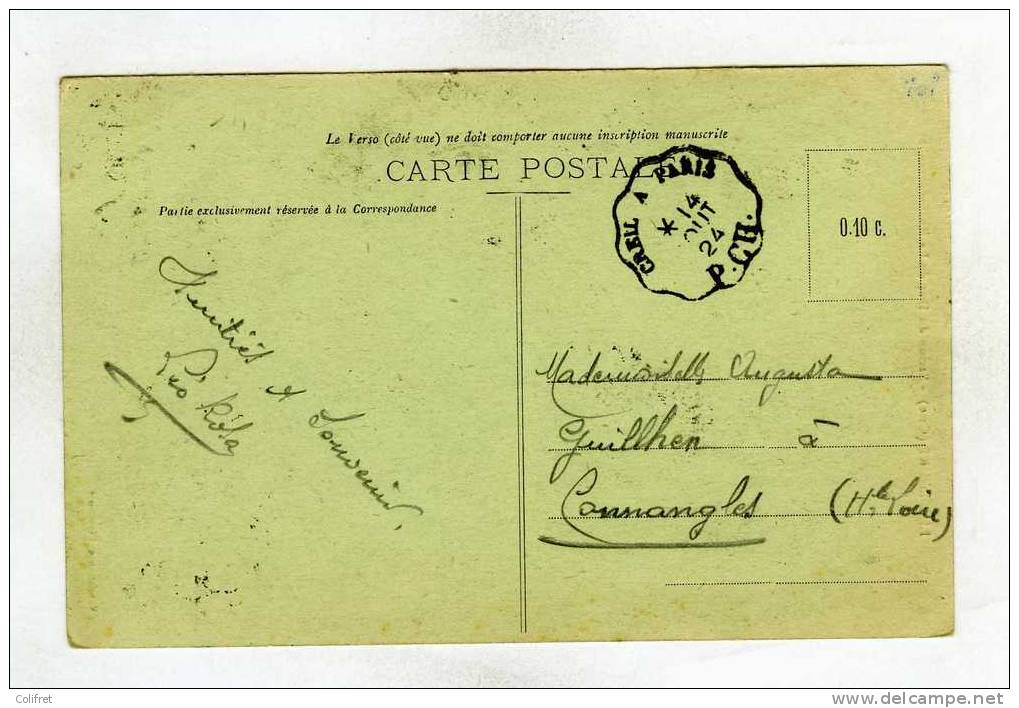 Le Verso (côté vue) ne doit comporter aucune inscription manuscrite
CARTE POSTALE
Partie exclusivement réservée à la Correspondance
CREIL A PARIS
* 14
OUT
24
P.CH.
0.10 c.
Amitiés et Souvenir.
Léo
Mademoiselle Augusta
Guillhen à
Connangles (Hte Loire)
Colifret
www.delcampe.net